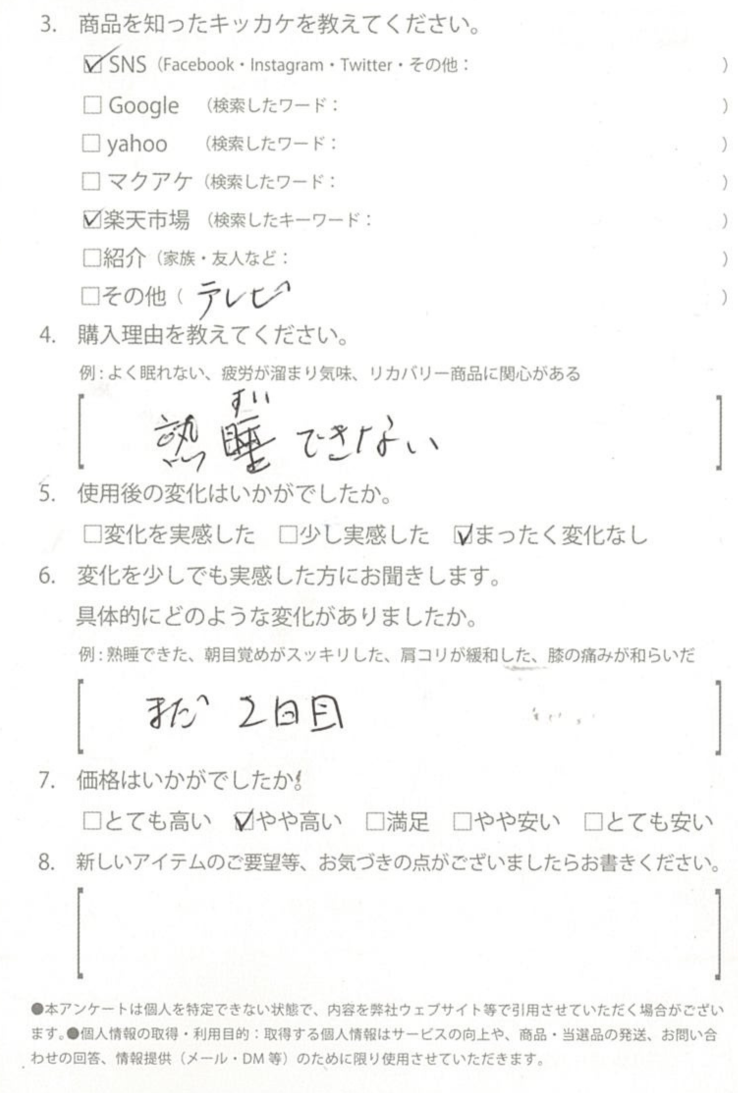 3. 商品を知ったキッカケを教えてください。
☑SNS（Facebook・Instagram・Twitter・その他：　）
□Google （検索したワード：　）
□yahoo （検索したワード：　）
□マクアケ（検索したワード：　）
☑楽天市場 （検索したキーワード：　）
□紹介（家族・友人など：　）
□その他（ テレビ ）
4. 購入理由を教えてください。
例：よく眠れない、疲労が溜まり気味、リカバリー商品に関心がある
すい
熟睡できない
5. 使用後の変化はいかがでしたか。
□変化を実感した □少し実感した ☑まったく変化なし
6. 変化を少しでも実感した方にお聞きします。
具体的にどのような変化がありましたか。
例：熟睡できた、朝目覚めがスッキリした、肩コリが緩和した、膝の痛みが和らいだ
まだ 2日目
7. 価格はいかがでしたか。
□とても高い ☑やや高い □満足 □やや安い □とても安い
8. 新しいアイテムのご要望等、お気づきの点がございましたらお書きください。
●本アンケートは個人を特定できない状態で、内容を弊社ウェブサイト等で引用させていただく場合がござい
ます。●個人情報の取得・利用目的：取得する個人情報はサービスの向上や、商品・当選品の発送、お問い合
わせの回答、情報提供（メール・DM 等）のために限り使用させていただきます。